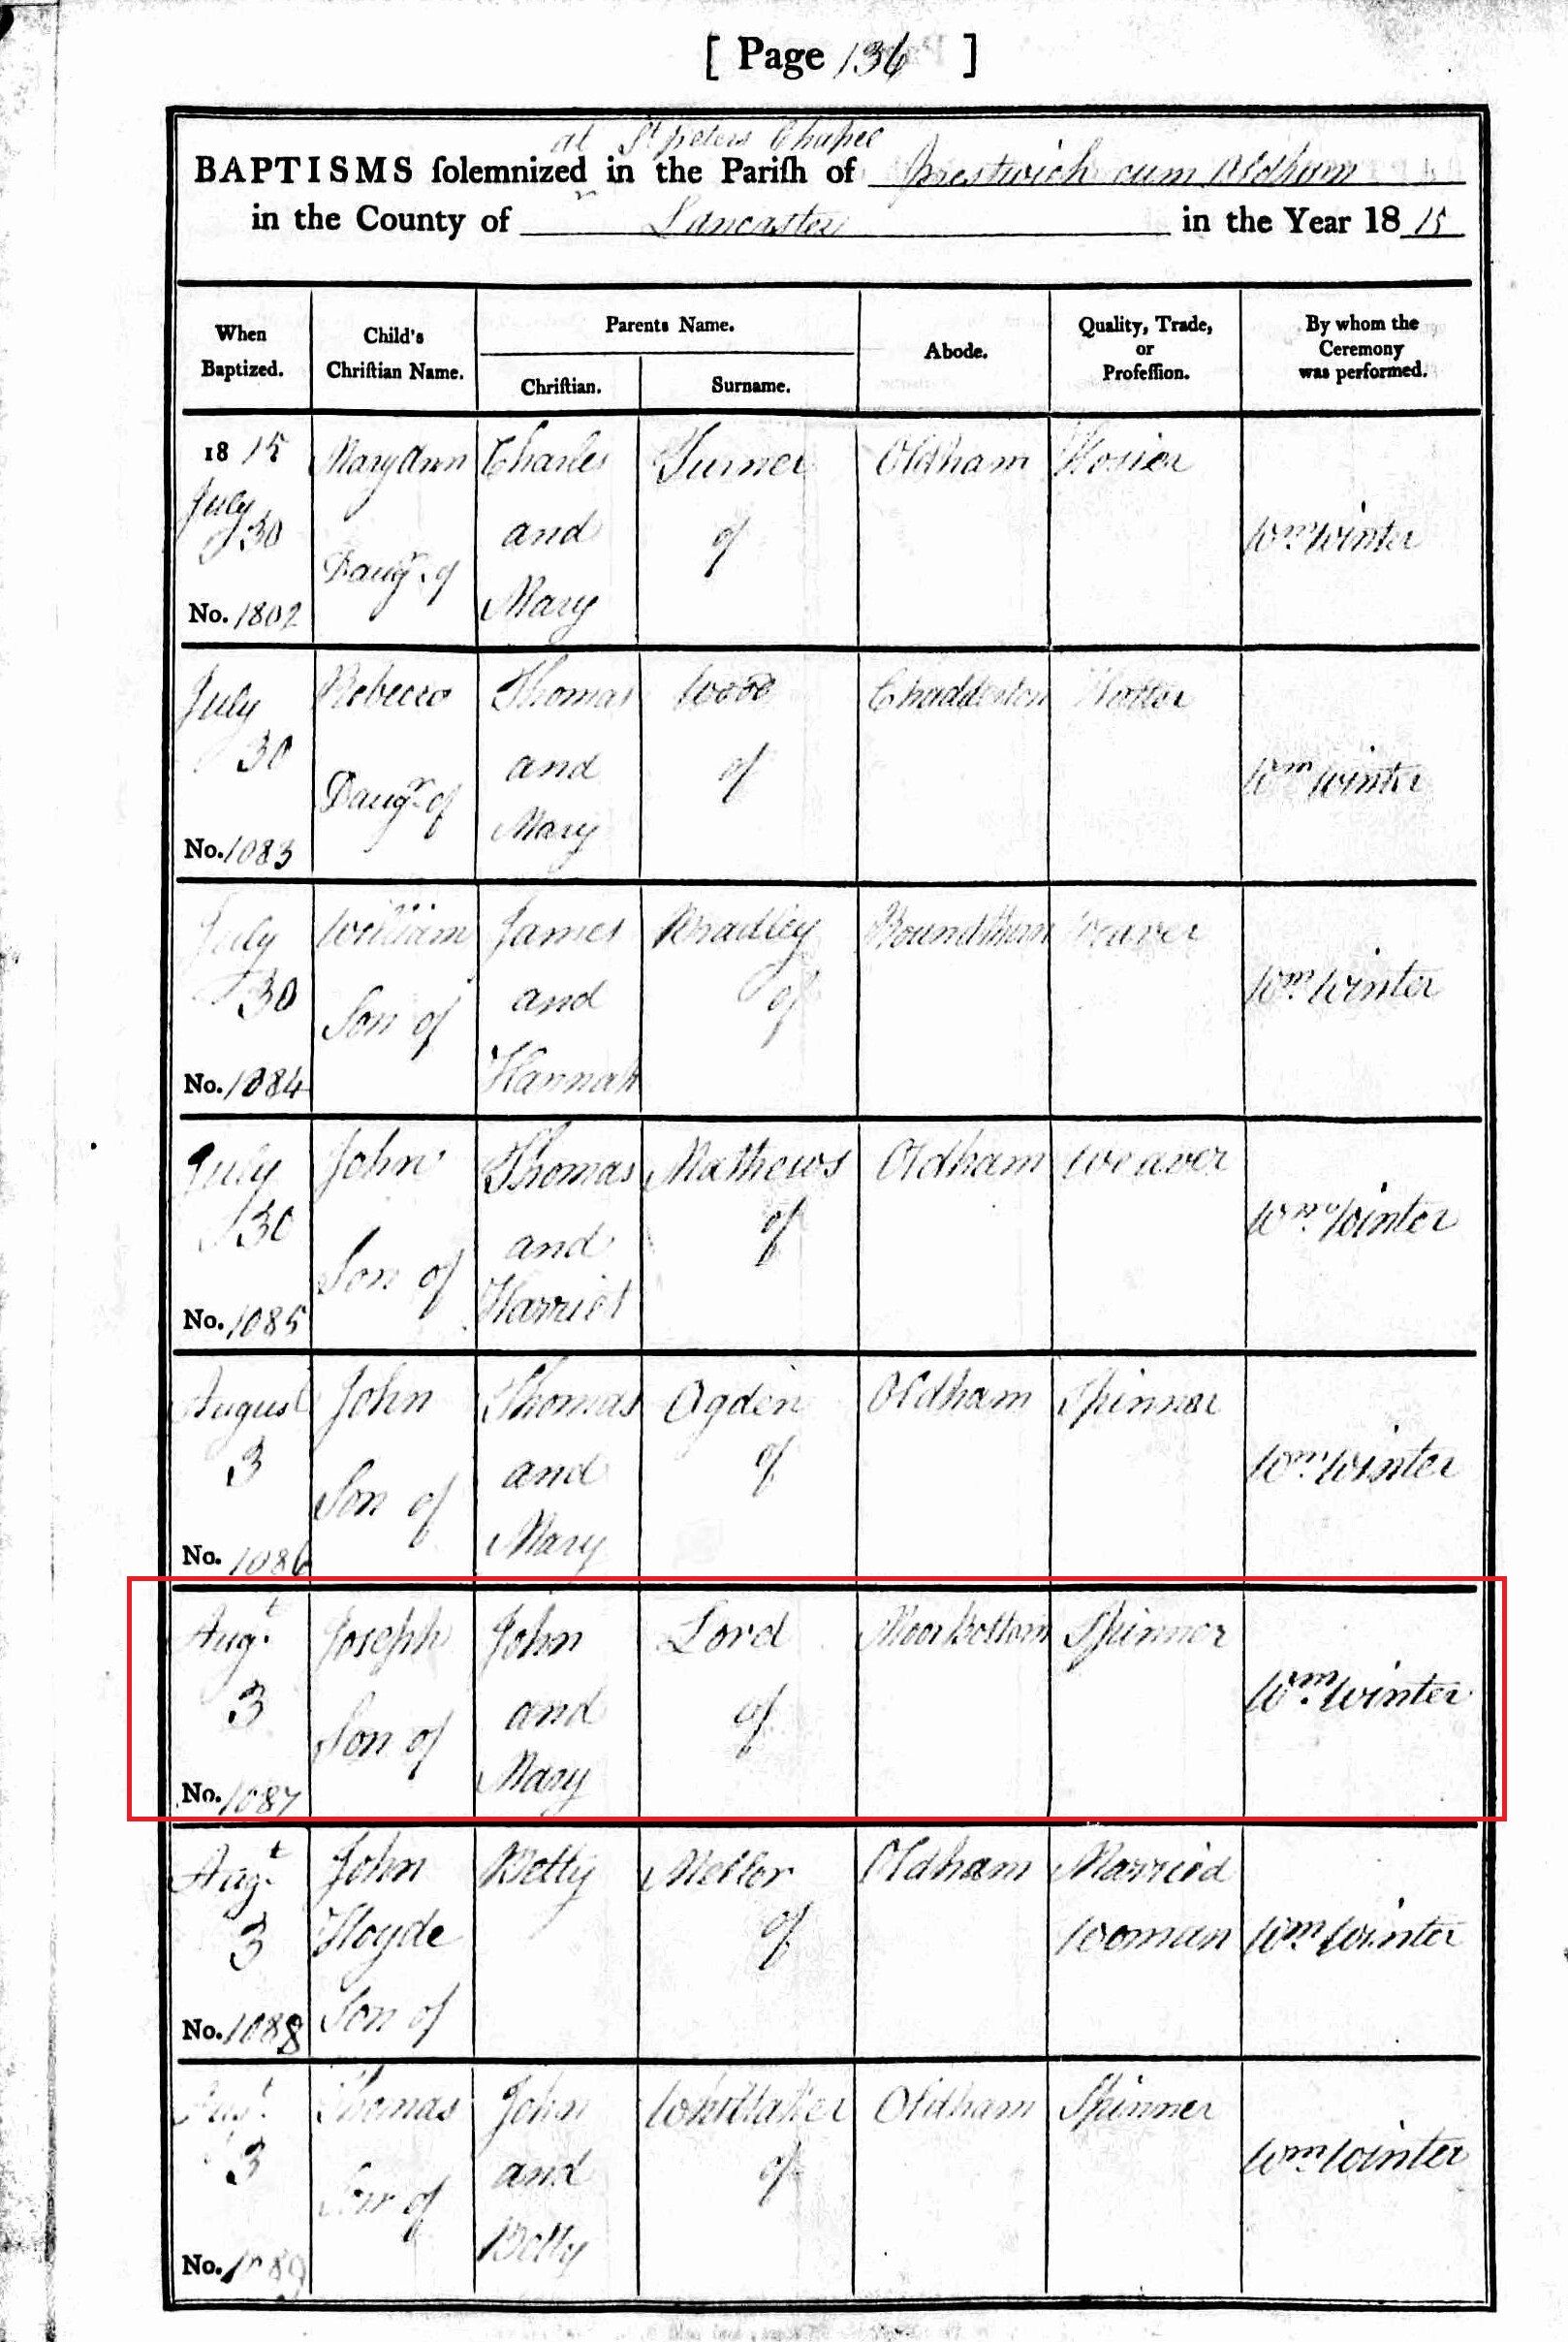 [ Page 136 ]
at St peters Chapel
BAPTISMS ſolemnized in the Pariſh of Prestwich cum Oldham
in the County of Lancaster in the Year 18 15
When Baptized.
Child's Chriſtian Name.
Parents Name.
Chriſtian.
Surname.
Abode.
Quality, Trade, or Profeſſion.
By whom the Ceremony was performed.
18 15 Mary Ann Charles Turner Oldham Hosier
July 30 Daugr. of and of Wm Winter
No. 1802 Mary
July Rebecca Thomas Wood Chadderton Hatter
30 Daugr. of and of Wm Winter
No. 1083 Mary
July William James Bradley Weaver
30 Son of and of Wm Winter
No. 1084 Hannah
July John Thomas Mathews Oldham Weaver
30 Son of and of Wm Winter
No. 1085 Harriet
August John Thomas Ogden Oldham Spinner
3 Son of and of Wm Winter
No. 1086 Mary
Augt. Joseph John Lord Moor Bottom Spinner
3 Son of and of Wm Winter
No. 1087 Mary
Augt. John Betty Mellor Oldham Married
3 Hoyde of Woman Wm Winter
No. 1088 Son of
Augt. Thomas John Whittaker Oldham Spinner
3 Son of and of Wm Winter
No. 1089 Betty